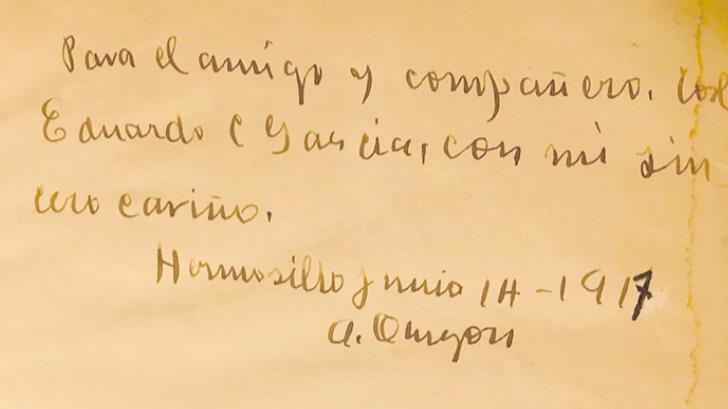 Para el amigo y compañero. Col
Eduardo C Garcia, con mi sin
cero cariño.
Hermosillo Junio 14-1917
A. Obregon